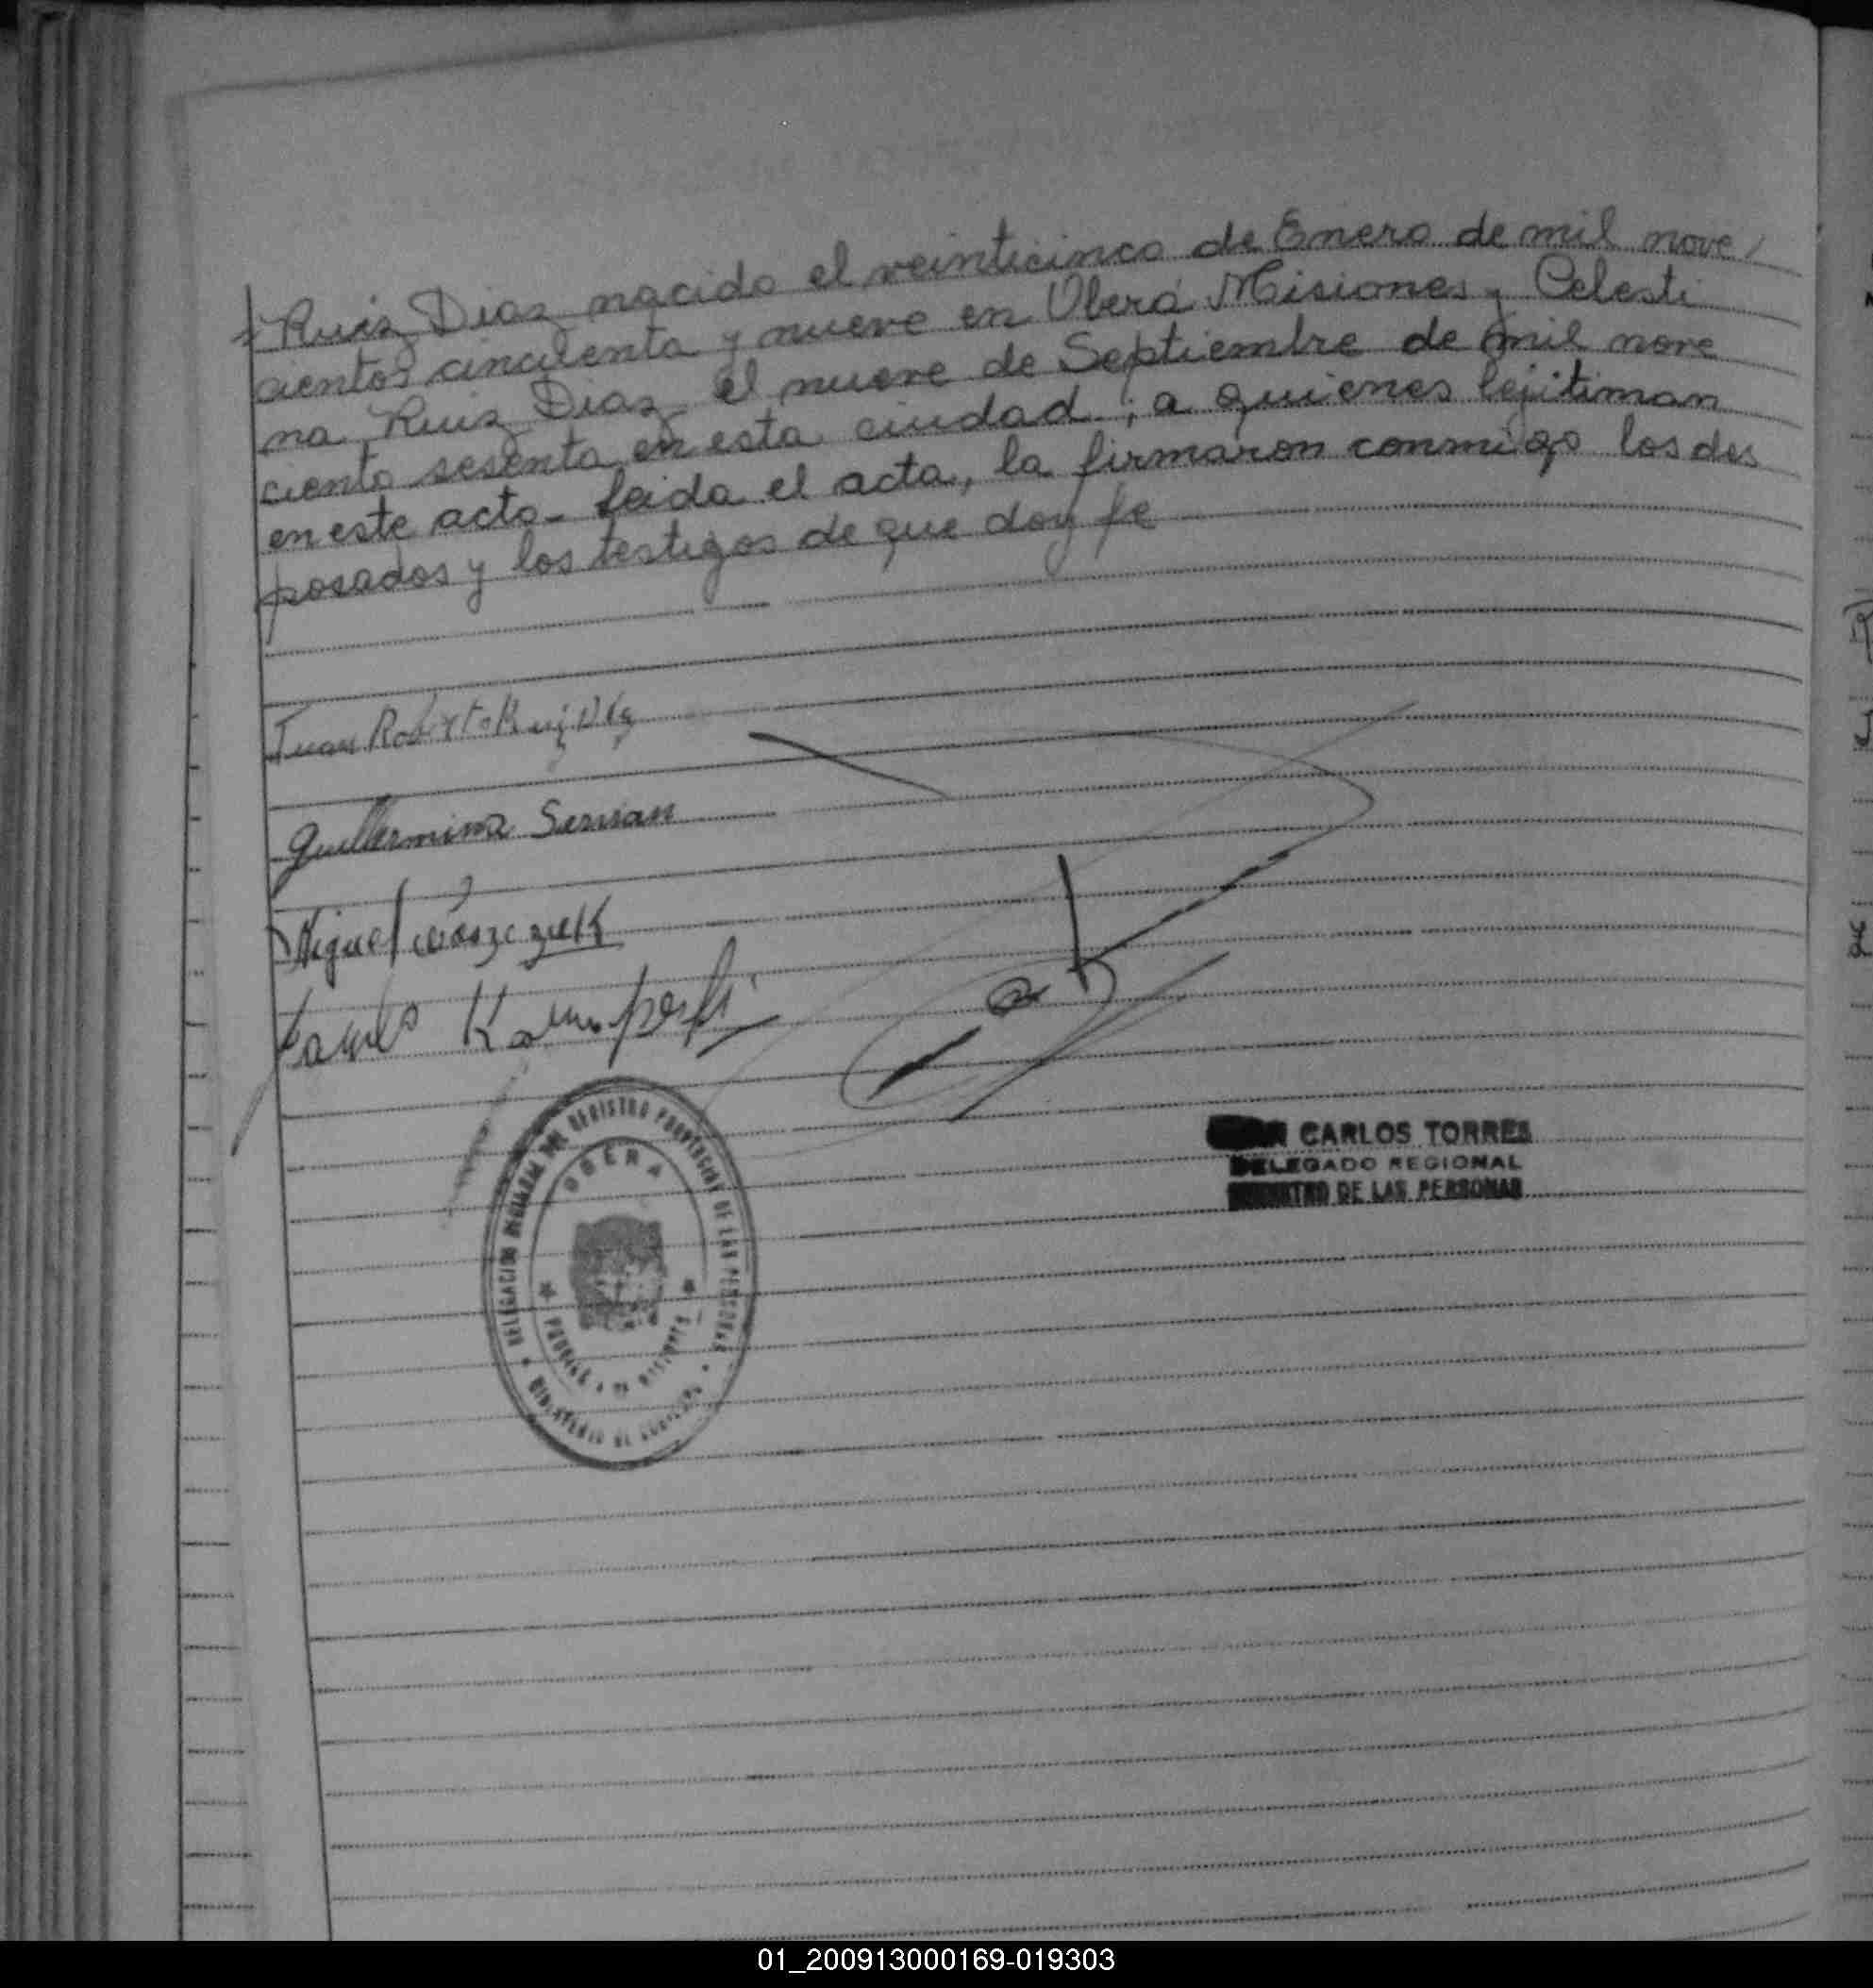 Ruiz Diaz nacido el veinticinco de Enero de mil nove
cientos cincuenta y nueve en Oberá Misiones y Celesti
na Ruiz Diaz el nueve de Septiembre de mil nove
ciento sesenta en esta ciudad; a quienes lejitiman
en este acto - Leida el acta, la firmaron conmigo los des
posados y los testigos de que doy fe
Juan Roberto Ruiz Diaz
Guillermina
Miguel
CARLOS TORRES
DELEGADO REGIONAL
DE LAS PERSONAS
DELEGACION REGISTRO PROVINCIAL DE LAS PERSONAS
OBERA
MINISTERIO DE GOBIERNO
01_200913000169-019303